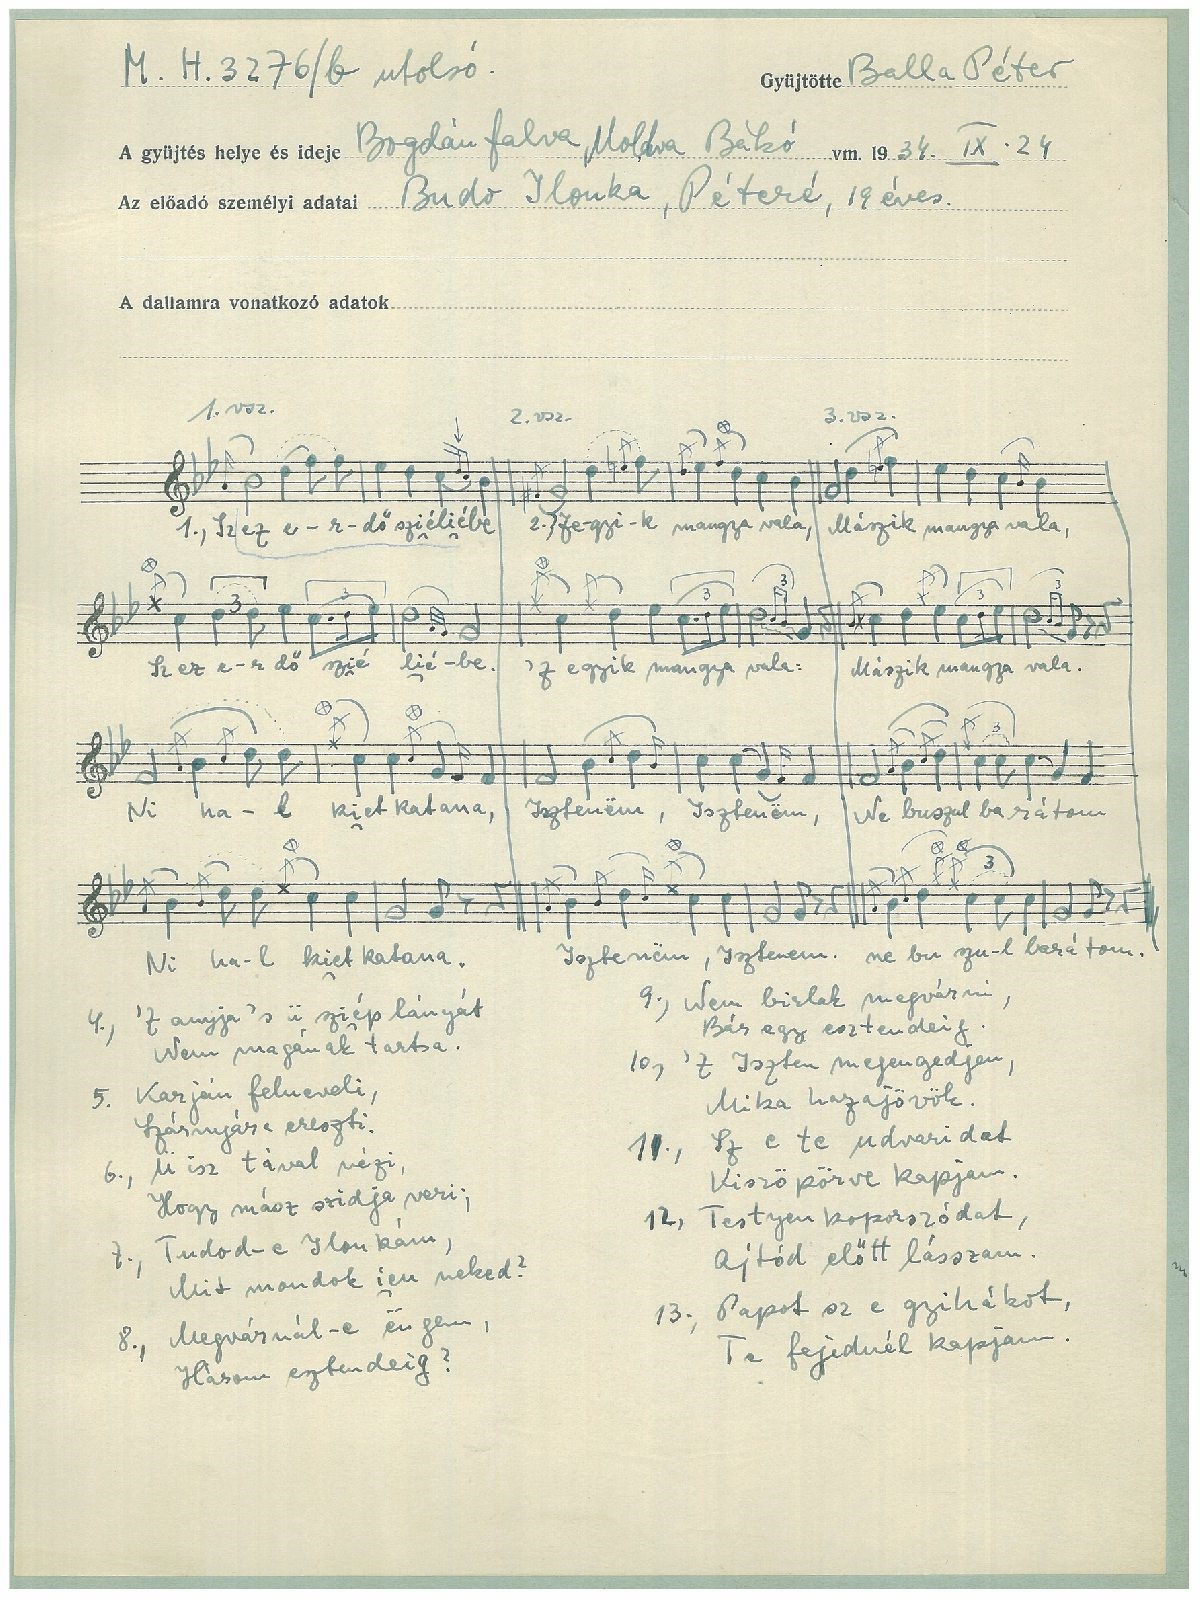 M. H. 3276/b utolsó.
Gyüjtötte Balla Péter
A gyüjtés helye és ideje Bogdánfalva, Moldva Bákó vm. 1934. IX. 24
Az előadó személyi adatai Budo Ilonka, Péteré, 19 éves.
A dallamra vonatkozó adatok
1. vsz. 2. vsz. 3. vsz.
1., Sz ez e-r-dő sziéliébe 2.) 'Ze-gyi-k mangya vala, Mászik mangya vala,
Sz ez e-r dő szié lié-be. 'z egyik mangya vala: Mászik mangya vala.
Ni ha-l kiet katana, Isztenëm, Isztenëm, Ne buszul barátom
Ni ha-l kiet katana. Isztenëm, Isztenem. ne bu szu-l barátom.
4., 'Z anyja 's ü sziép lányát
Nem magának tartsa.
5. Karján felneveli,
Szárnyára ereszti.
6., Ü isz tával nézi,
Hogy mász szidja veri;
7., Tudod-e Ilonkám,
Mit mondok ien neked?
8., Megvárnál-e ëngem,
Három esztendeig?
9., Nem birlak megvárni,
Bár egy esztendeig.
10, 'Z Iszten megengedjen,
Mika hazajövök.
11., Sz e te udvaridat
Kiszöpörve kapjam.
12, Testyen koporszódat,
Ajtód előtt lásszam.
13., Papot sz e gyihákot,
Te fejidnél kapjam.